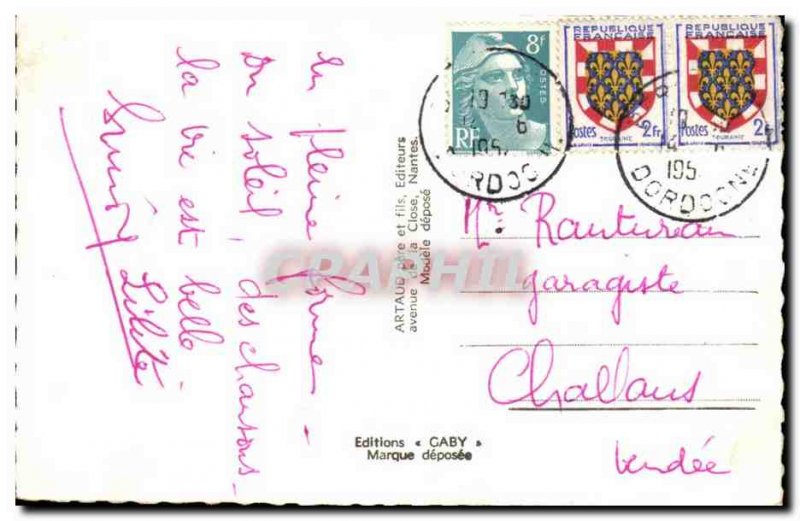 en pleine forme -
Du soleil, des chansons -
la vie est belle
Lilité
8F
POSTES
RF
REPUBLIQUE
FRANÇAISE
Postes
2Fr
TOURAINE
REPUBLIQUE
FRANÇAISE
Postes
2Fr
TOURAINE
19 30
6
195
DORDOGNE
195
DORDOGNE
Mr. Rautureau
garagiste
Challans
Vendée
ARTAUD père et fils, Editeurs
avenue de la Close, Nantes.
Modèle déposé
Editions « GABY »
Marque déposée
CPAPHIL